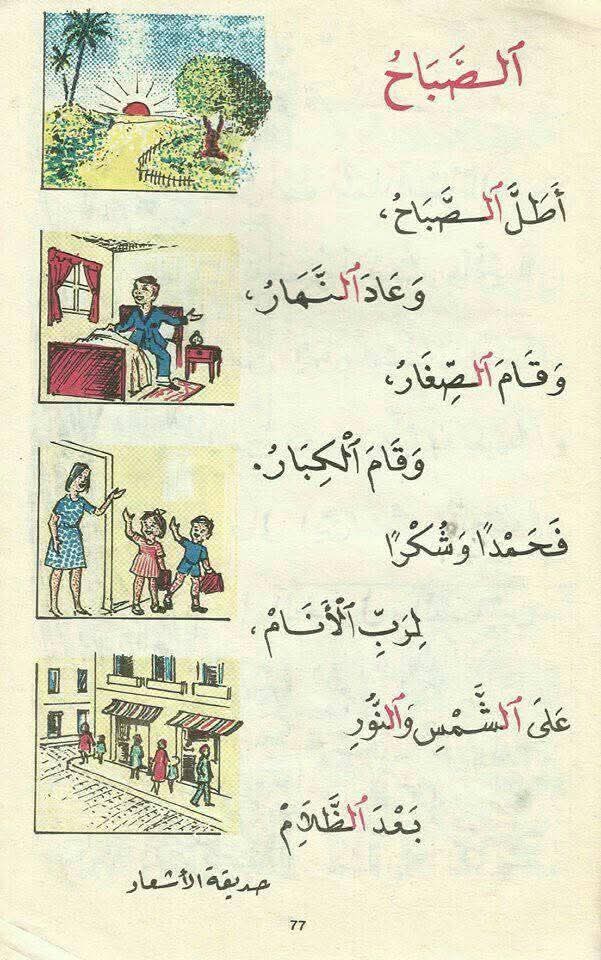 اَلصَّبَاحُ
أَطَلَّ اَلصَّبَاحُ،
وَعَادَ اَلنَّهَارُ،
وَقَامَ اَلصِّغَارُ،
وَقَامَ اَلْكِبَارُ.
فَحَمْدًا وَشُكْرًا
لِرَبِّ اَلْأَنَامْ،
عَلَى اَلشَّمْسِ وَاَلنُّورِ
بَعْدَ اَلظَّلَامْ
حديقة الأشعار
77